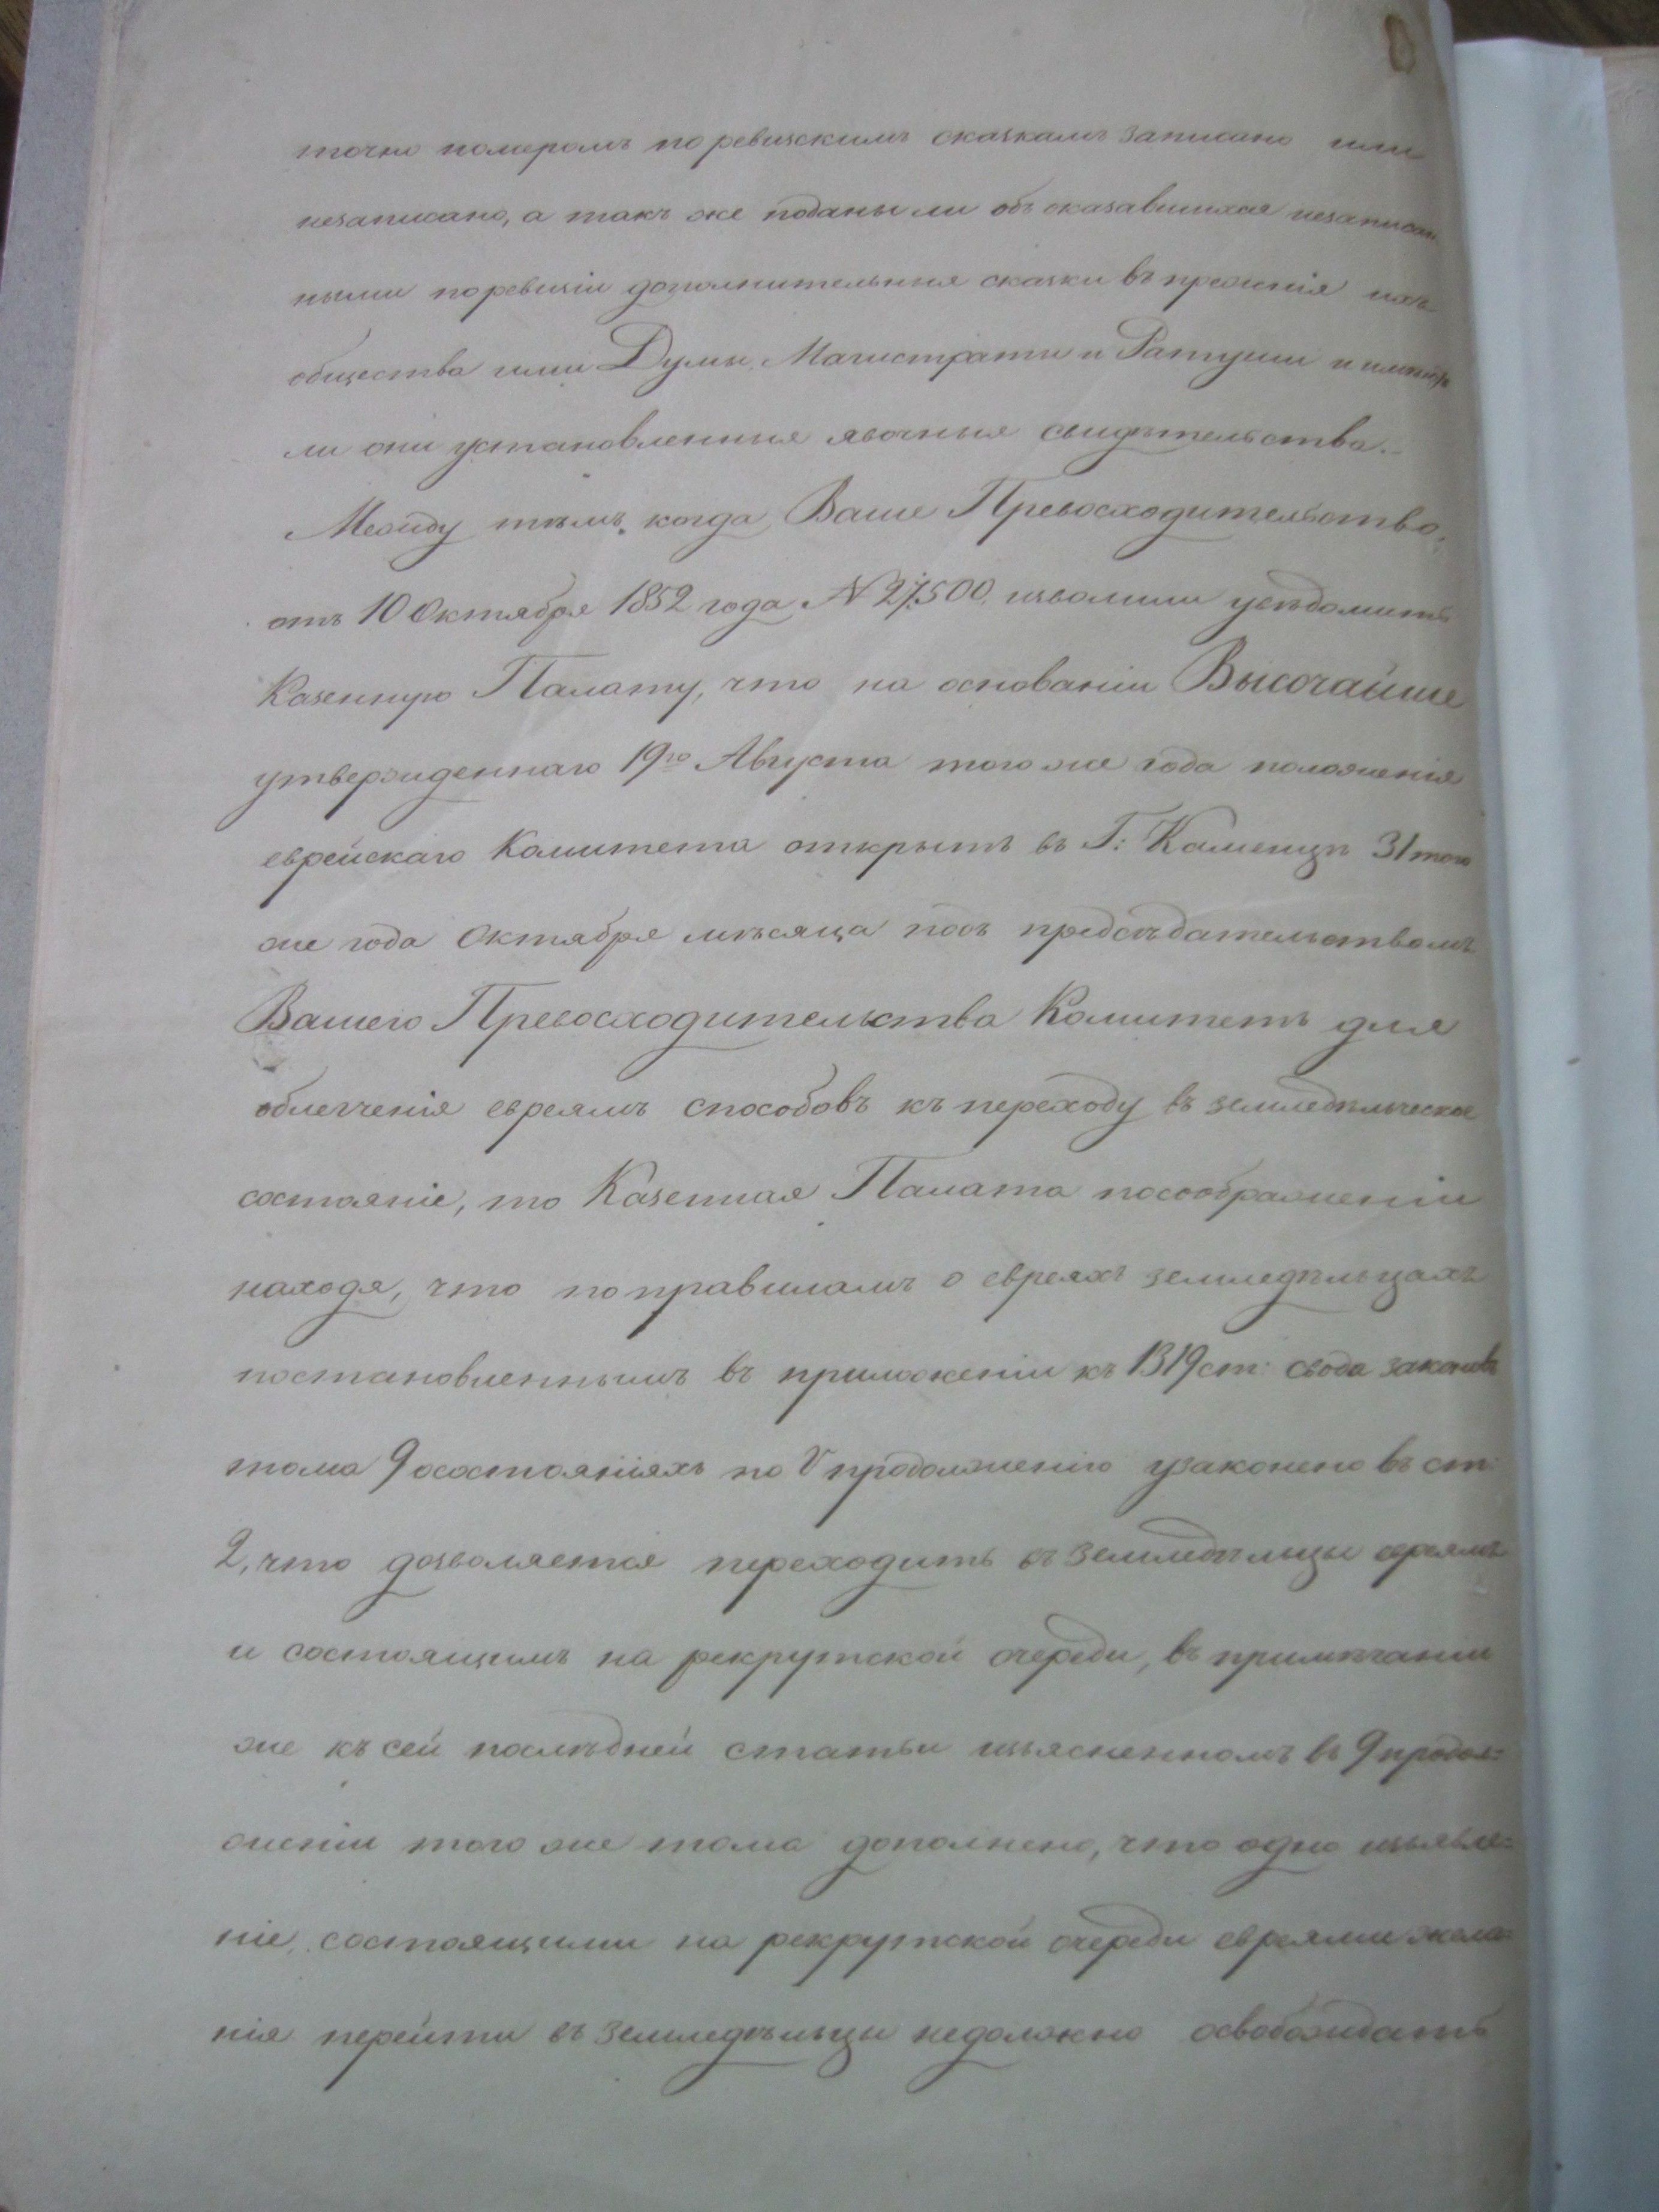 точно номеромъ по ревизскимъ сказкамъ записано или
незаписано, а такъ же поданы ли объ оказавшихся незаписан
ными поревизіи дополнительныя сказки въ прежнія ихъ
общества или Думы, Магистраты и Ратуши и имѣютъ
ли они установленныя явочныя свидѣтельства.
Между тѣмъ, когда Ваше Превосходительство,
отъ 10 Октября 1852 года N 27,500, изволили увѣдомить
Казенную Палату, что на основаніи Высочайше
утвержденнаго 19го Августа того же года положенія
еврейскаго Комитета открытъ въ Г: Каменцѣ 31 того
же года Октября мѣсяца подъ предсѣдательствомъ
Вашего Превосходительства Комитетъ для
облегченія евреямъ способовъ къ переходу въ земледѣльческое
состояніе, то Казенная Палата посоображеніи
находя, что по правиламъ о евреяхъ земледѣльцахъ
постановленнымъ въ приложеніи къ 1319 ст: свода законовъ
тома 9 осостояніяхъ по V продолженію узаконено въ ст:
2, что дозволяется переходить въ земледѣльцы евреямъ
и состоящимъ на рекрутской очереди, въ примѣчаніи
же къ сей послѣдней статьи изъясненномъ въ 9 продол=
женіи того же тома дополнено, что одно изъявле=
ніе, состоящими на рекрутской очереди евреями жела=
нія перейти въ земледѣльцы недолжно освобождать